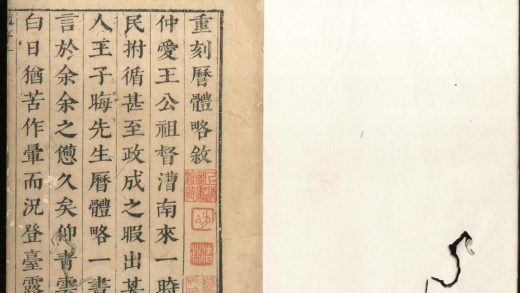 重刻曆體略敘
仲愛王公祖督漕南來一時
民拊循甚至政成之暇出其
人王子晦先生曆體略一書
言於余余之憊久矣仰看雲
白日猶苦作暈而況登臺露